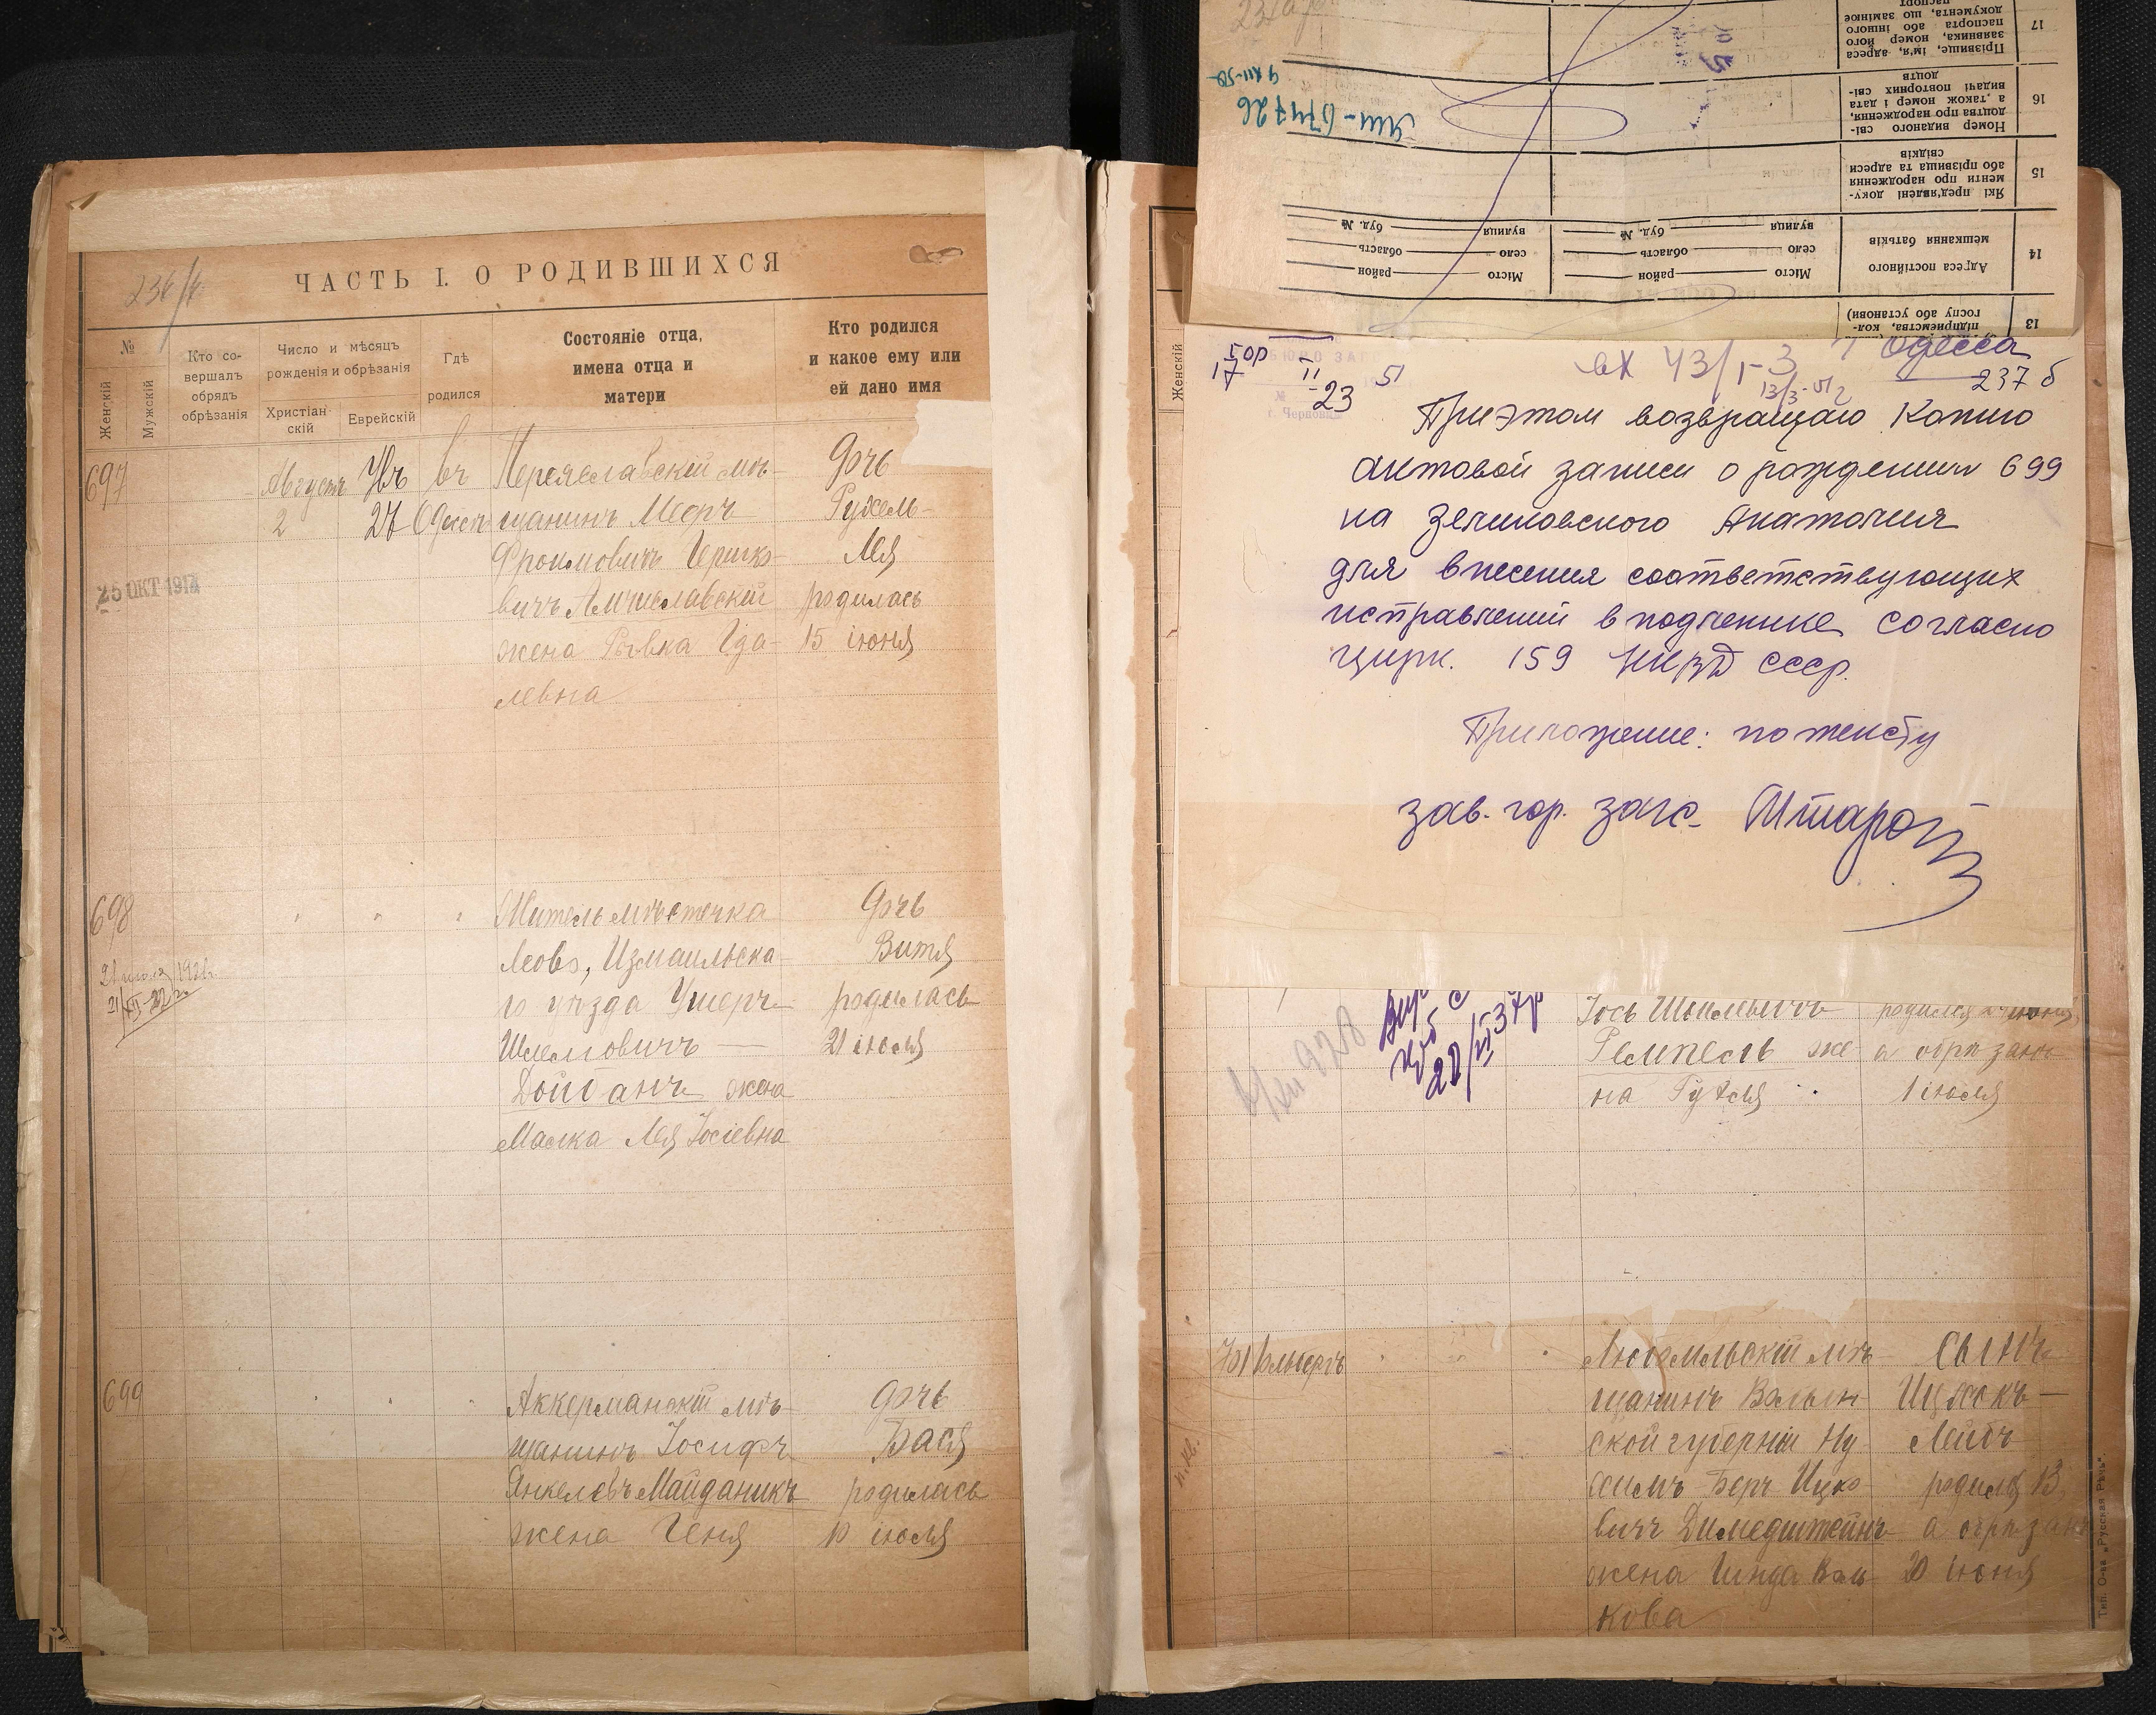 ЧАСТЬ I. О РОДИВШИХСЯ
№
Женскій
Мужскій
Кто со-
вершалъ
обрядъ
обрѣзанія
Число и мѣсяцъ
рожденія и обрѣзанія
Христіан-
скій
Еврейскій
Гдѣ
родился
Состояніе отца,
имена отца и
матери
Кто родился
и какое ему или
ей дано имя
697
Августъ
2
27
въ
Одессѣ
25 ОКТ 1912
Переяславскій мѣ-
щанинъ Мееръ
Фроимовичъ Гершко-
вичъ Амчиславскій
жена Ривка Гда-
левна
дочь
Рухель-
Лея
родилась
15 іюня
698
Житель мѣстечка
Леово, Измаильска-
го уѣзда Ушеръ
Шлемовичъ —
Дойбанъ жена
Малка Лея Іосіевна
дочь
Витя
родилась
21 іюля
699
Аккерманскій мѣ-
щанинъ Іосифъ
Янкелевъ Майданикъ
жена Геня
дочь
Бася
родилась
10 іюля
17
Прізвище, ім'я, адреса
заявника, номер його
паспорта або іншого
документа, що замінює
паспорт
16
Номер виданого сві-
доцтва про народження,
а також номер і дата
видачі повторних сві-
доцтв
15
Які пред'явлені доку-
менти про народження
або прізвища та адреси
свідків
14
Адреса постійного
мешкання батьків
Місто район
село область
вулиця буд. №
Місто район
село область
вулиця буд. №
13
підприємства, кол-
госпу або установи)
Женскій
23
51
вх 43/1-3
13/3-51 г
Одесса
237 б
Приэтом возвращаю Копию
актовой записи о рождении 699
на Зеликовского Анатолия
для внесения соответствующих
исправлений в подлинике согласно
цирк. 159 НКВД СССР.
Приложение: по тексту
зав. гор. загс.
Іось Шмилевичъ
Ремпель же-
на Гудля
родился
а обрѣзанъ
1 іюля
Любомльскій мѣ-
щанинъ Волын-
ской губерніи Ну-
химъ Беръ Ицко-
вичъ Димедштейнъ
жена Гинда Воль-
кова
Сынъ
Ицхокъ —
Лейбъ
родился 13
а обрѣзанъ
20 іюня
Тип. О-ва „Русская Рѣчь".